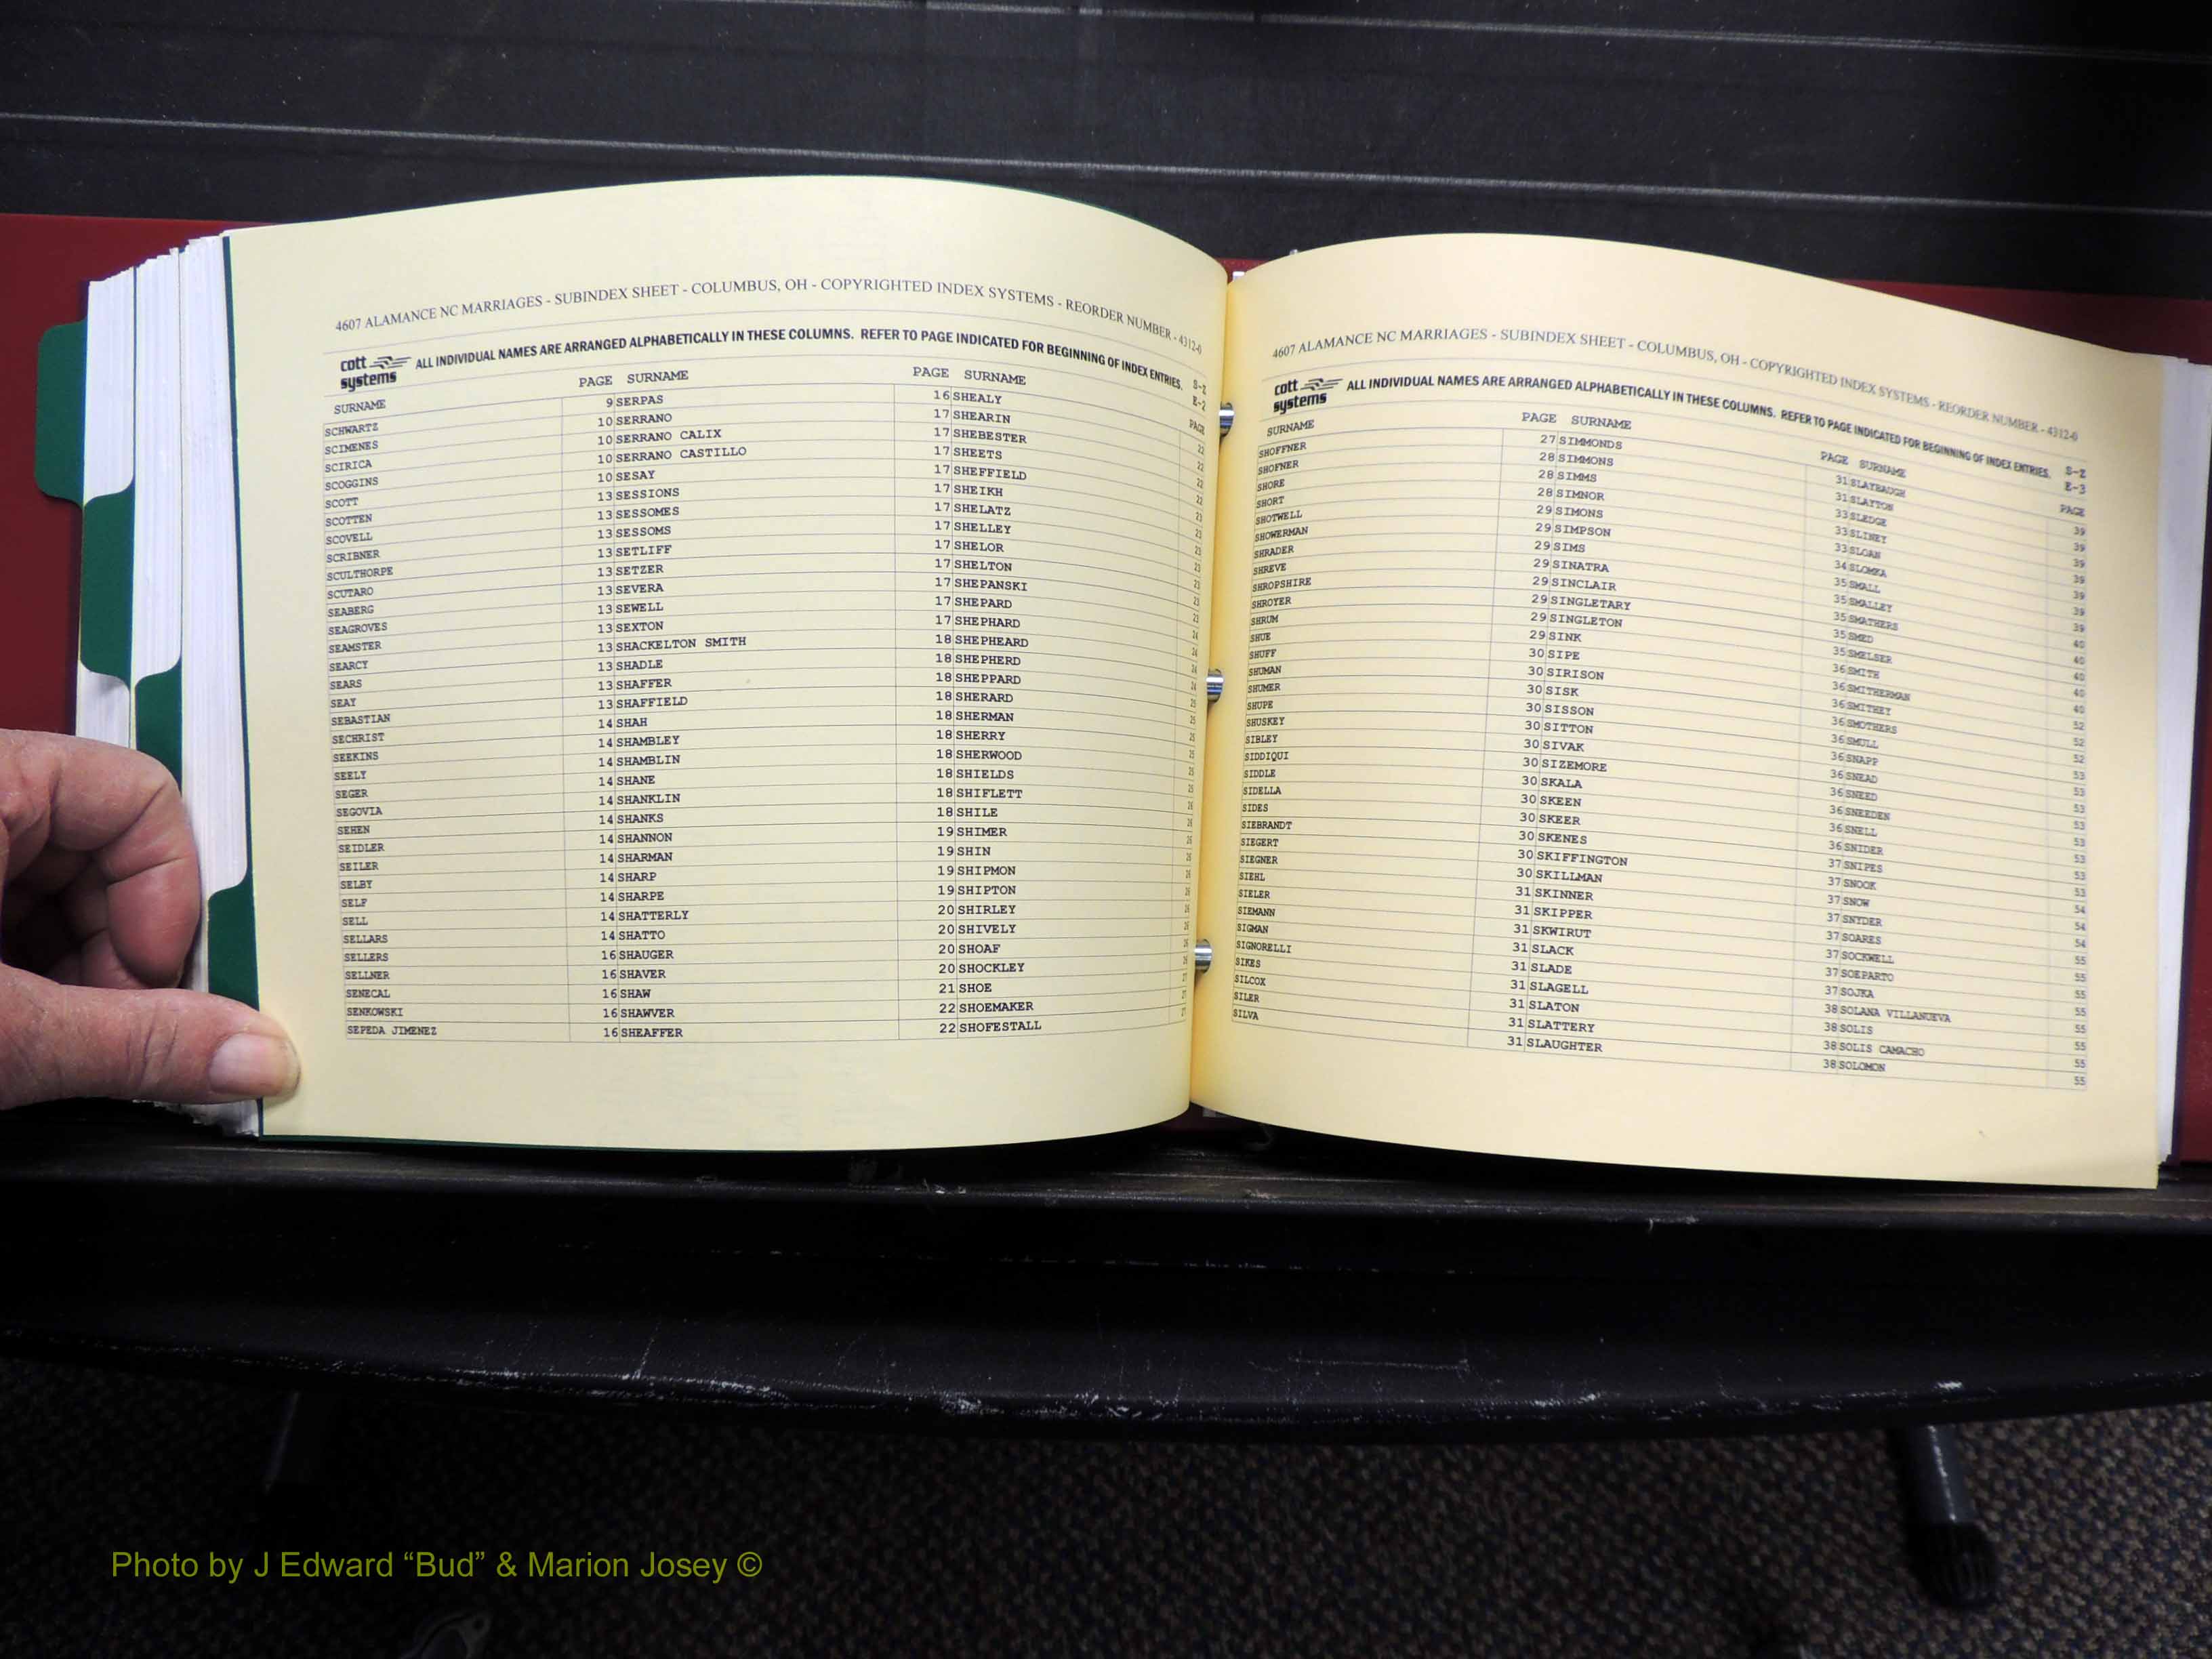 4607 ALAMANCE NC MARRIAGES - SUBINDEX SHEET - COLUMBUS, OH - COPYRIGHTED INDEX SYSTEMS - REORDER NUMBER - 4312-0
cott systems ALL INDIVIDUAL NAMES ARE ARRANGED ALPHABETICALLY IN THESE COLUMNS. REFER TO PAGE INDICATED FOR BEGINNING OF INDEX ENTRIES. S-Z
E-2
SURNAME PAGE SURNAME PAGE SURNAME PAGE
SCHWARTZ 9 SERPAS 16 SHEALY
SCIMENES 10 SERRANO 17 SHEARIN
SCIRICA 10 SERRANO CALIX 17 SHEBESTER
SCOGGINS 10 SERRANO CASTILLO 17 SHEETS
SCOTT 10 SESAY 17 SHEFFIELD
SCOTTEN 13 SESSIONS 17 SHEIKH
SCOVELL 13 SESSOMES 17 SHELATZ
SCRIBNER 13 SESSOMS 17 SHELLEY
SCULTHORPE 13 SETLIFF 17 SHELOR
SCUTARO 13 SETZER 17 SHELTON
SEABERG 13 SEVERA 17 SHEPANSKI
SEAGROVES 13 SEWELL 17 SHEPARD
SEAMSTER 13 SEXTON 17 SHEPHARD
SEARCY 13 SHACKELTON SMITH 18 SHEPHEARD
SEARS 13 SHADLE 18 SHEPHERD
SEAY 13 SHAFFER 18 SHEPPARD
SEBASTIAN 13 SHAFFIELD 18 SHERARD
SECHRIST 14 SHAH 18 SHERMAN
SEEKINS 14 SHAMBLEY 18 SHERRY
SEELY 14 SHAMBLIN 18 SHERWOOD
SEGER 14 SHANE 18 SHIELDS
SEGOVIA 14 SHANKLIN 18 SHIFLETT
SEHEN 14 SHANKS 18 SHILE
SEIDLER 14 SHANNON 19 SHIMER
SEILER 14 SHARMAN 19 SHIN
SELBY 14 SHARP 19 SHIPMON
SELF 14 SHARPE 19 SHIPTON
SELL 14 SHATTERLY 20 SHIRLEY
SELLARS 14 SHATTO 20 SHIVELY
SELLERS 16 SHAUGER 20 SHOAF
SELLNER 16 SHAVER 20 SHOCKLEY
SENECAL 16 SHAW 21 SHOE
SENKOWSKI 16 SHAWVER 22 SHOEMAKER
SEPEDA JIMENEZ 16 SHEAFFER 22 SHOFESTALL
4607 ALAMANCE NC MARRIAGES - SUBINDEX SHEET - COLUMBUS, OH - COPYRIGHTED INDEX SYSTEMS - REORDER NUMBER - 4312-0
cott systems ALL INDIVIDUAL NAMES ARE ARRANGED ALPHABETICALLY IN THESE COLUMNS. REFER TO PAGE INDICATED FOR BEGINNING OF INDEX ENTRIES. S-Z
E-3
SURNAME PAGE SURNAME PAGE SURNAME PAGE
SHOFFNER 27 SIMMONDS 31 SLAYBAUGH 39
SHOFNER 28 SIMMONS 31 SLAYTON 39
SHORE 28 SIMMS 33 SLEDGE 39
SHORT 28 SIMNOR 33 SLINEY 39
SHOTWELL 29 SIMONS 33 SLOAN 39
SHOWERMAN 29 SIMPSON 34 SLOMKA 39
SHRADER 29 SIMS 35 SMALL 39
SHREVE 29 SINATRA 35 SMALLEY 40
SHROPSHIRE 29 SINCLAIR 35 SMATHERS 40
SHROYER 29 SINGLETARY 35 SMED 40
SHRUM 29 SINGLETON 35 SMELSER 40
SHUE 29 SINK 36 SMITH 40
SHUFF 30 SIPE 36 SMITHERMAN 52
SHUMAN 30 SIRISON 36 SMITHEY 52
SHUMER 30 SISK 36 SMOTHERS 52
SHUPE 30 SISSON 36 SMULL 53
SHUSKEY 30 SITTON 36 SNAPP 53
SIBLEY 30 SIVAK 36 SNEAD 53
SIDDIQUI 30 SIZEMORE 36 SNEED 53
SIDDLE 30 SKALA 36 SNEEDEN 53
SIDELLA 30 SKEEN 36 SNELL 53
SIDES 30 SKEER 36 SNIDER 53
SIEBRANDT 30 SKENES 37 SNIPES 53
SIEGERT 30 SKIFFINGTON 37 SNOOK 54
SIEGNER 30 SKILLMAN 37 SNOW 54
SIEHL 31 SKINNER 37 SNYDER 54
SIELER 31 SKIPPER 37 SOARES 55
SIEMANN 31 SKWIRUT 37 SOCKWELL 55
SIGMAN 31 SLACK 37 SOEPARTO 55
SIGNORELLI 31 SLADE 37 SOJKA 55
SIKES 31 SLAGELL 38 SOLANA VILLANUEVA 55
SILCOX 31 SLATON 38 SOLIS 55
SILER 31 SLATTERY 38 SOLIS CAMACHO 55
SILVA 31 SLAUGHTER 38 SOLOMON 55
Photo by J Edward “Bud” & Marion Josey ©